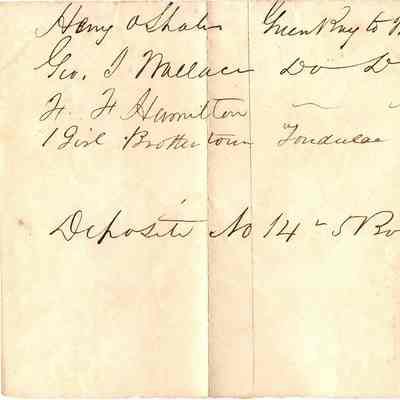 Heny O Shales Green Bay to
Geo. I Wallace Do D
H. H Hamilton
1 Girl Brothertown Fondulac
Deposite No 14 - 5 Bo